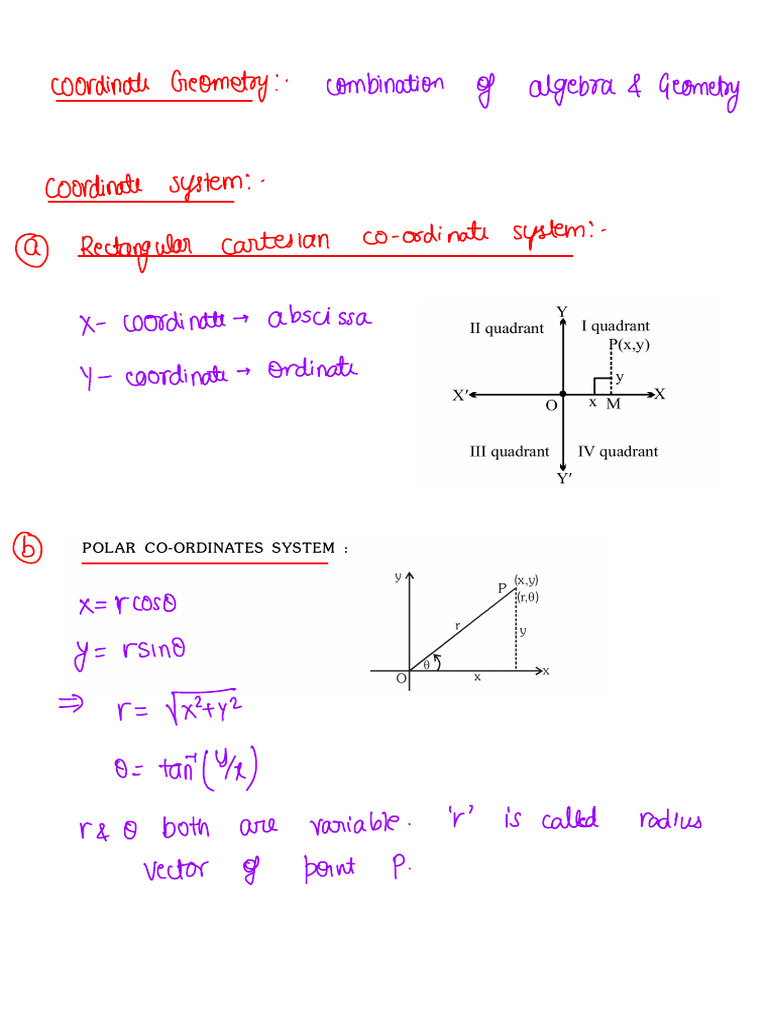 Coordinate Geometry:- Combination of algebra & Geometry
Coordinate system:-
(a) Rectangular Cartesian co-ordinate system:-
X- coordinate → abscissa
Y- coordinate → Ordinate
Y
II quadrant I quadrant
P(x,y)
y
X' X
O x M
III quadrant IV quadrant
Y'
(b) POLAR CO-ORDINATES SYSTEM :
x = r cosθ
y = r sinθ
⇒ r = √x²+y²
θ = tan⁻¹(y/x)
y
P (x,y)
(r,θ)
r
y
θ
O x x
r & θ both are variable. 'r' is called radius
vector of point P.